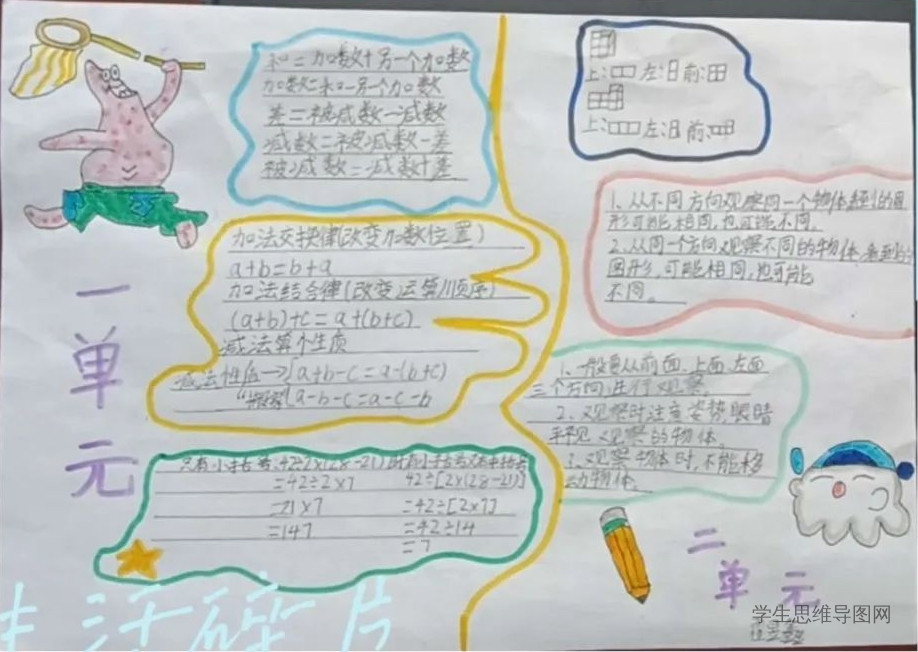 和=加数+另一个加数
加数=和-另一个加数
差=被减数-减数
减数=被减数-差
被减数=减数+差
加法交换律(改变加数位置)
a+b=b+a
加法结合律(改变运算顺序)
(a+b)+c=a+(b+c)
减法算个性质
减法性血→a+b-c=a-(b+c)
a-b-c=a-c-b
只有小括号:42÷2×(28-21)
=42÷2×7
=21×7
=147
42÷[2×(28-21)]
=42÷[2×7]
=42÷14
=7
一单元
上: 左: 前:
上: 左: 前:
1、从不同方向观察同一个物体看到的图
形可能相同,也可能不同。
2、从同一个方向观察不同的物体,看到的
图形,可能相同,也可能
不同。
1、一般要从前面、上面、左面
三个方向进行观察
2、观察时注意姿势,眼睛
平视观察的物体。
3、观察物体时,不能移
动物体。
二单元
生活碎片
学生思维导图网